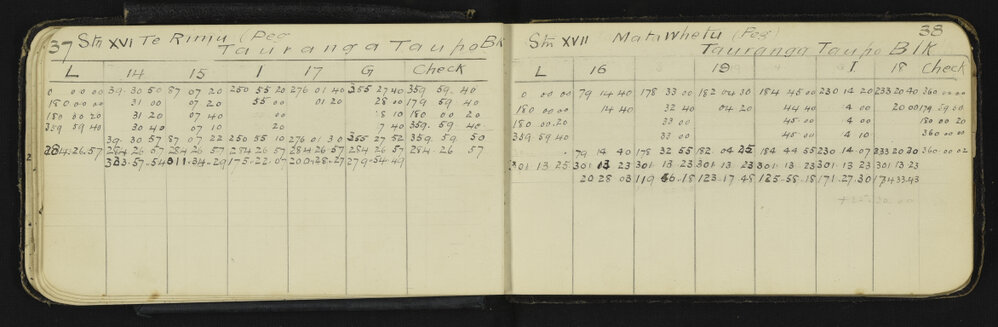 37 Stn XVI Te Rimu (Peg
Tauranga Taupo Bk
L 14 15 I 17 G Check
0 00 00 39 30 50 87 07 20 250 55 20 276 01 40 355 27 40 359 59 40
180 00 00 31 00 07 20 55 00 01 20 28 00 179 59 40
180 00 20 31 20 07 40 00 8 10 180 00 20
359 59 40 30 40 07 10 20 7 40 359 59 40
39 30 57 87 07 22 250 55 10 276 01 30 355 27 52 359 59 50
284.26.57 284 26 57 284 26 57 284 26 57 284 26 57 284 26 57 284 26 57
323.57.54 011.34.29 175.22.07 200.28.27 279.54.49
Stn XVII Matawhetu (Peg) 38
Tauranga Taupo Blk
L 16 19 I 18 Check
0 00 00 79 14 40 178 33 00 182 04 30 184 45 00 230 14 20 233 20 40 360 00 00
180 00 00 14 40 32 40 04 20 44 40 4 00 20 00 179 59 00
180 00 20 33 00 45 00 4 00 180 00 20
359 59 40 33 00 45 00 4 10 360 00 00
79 14 40 178 32 55 182 04 25 184 44 55 230 14 07 233 20 20 360 00 02
301 13 25 301 13 23 301 13 23 301 13 23 301 13 23 301 13 23 301 13 23
20 28 03 119 46 18 123.17.48 125.58.18 171.27.30 174 33 43